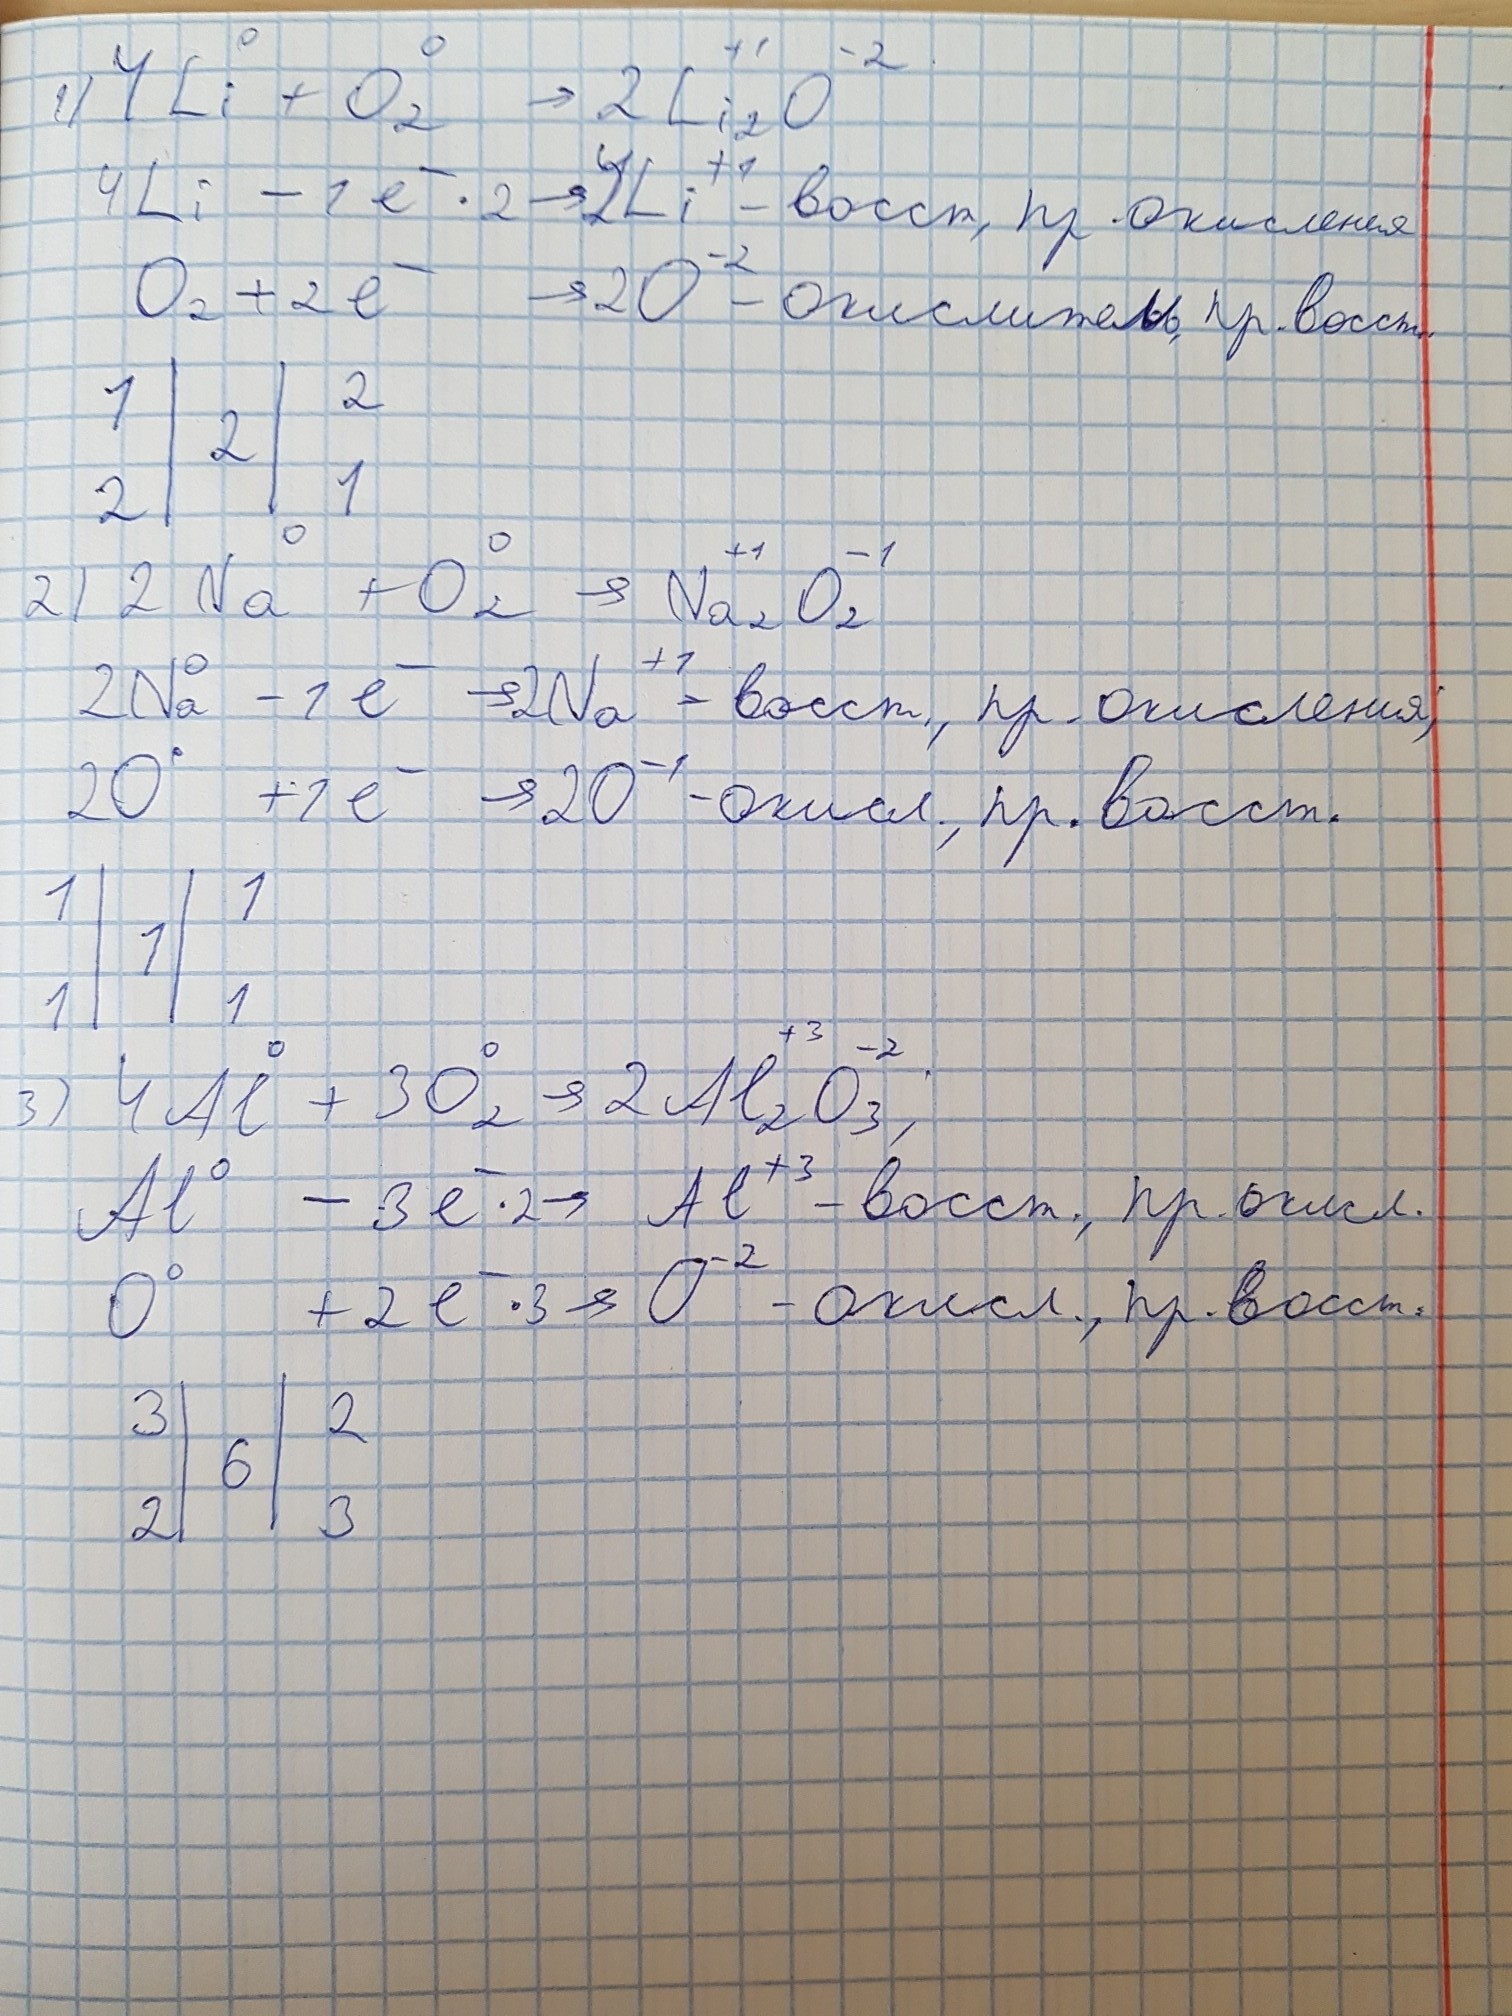 1) 4Li⁰ + O₂⁰ → 2Li₂⁺¹O⁻²
4Li - 1e⁻ · 2 → 4Li⁺¹ - восст, пр. окисления
O₂ + 2e⁻ → 2O⁻² - окислитель, пр. восст.
1 | | 2
2
2 | | 1
2) 2Na⁰ + O₂⁰ → Na₂⁺¹O₂⁻¹
2Na⁰ - 1e⁻ → 2Na⁺¹ - восст., пр. окисления;
2O⁰ + 1e⁻ → 2O⁻¹ - окисл., пр. восст.
1 | | 1
1
1 | | 1
3) 4Al⁰ + 3O₂⁰ → 2Al₂⁺³O₃⁻²;
Al⁰ - 3e⁻ · 2 → Al⁺³ - восст., пр. окисл.
O⁰ + 2e⁻ · 3 → O⁻² - окисл., пр. восст.
3 | | 2
6
2 | | 3